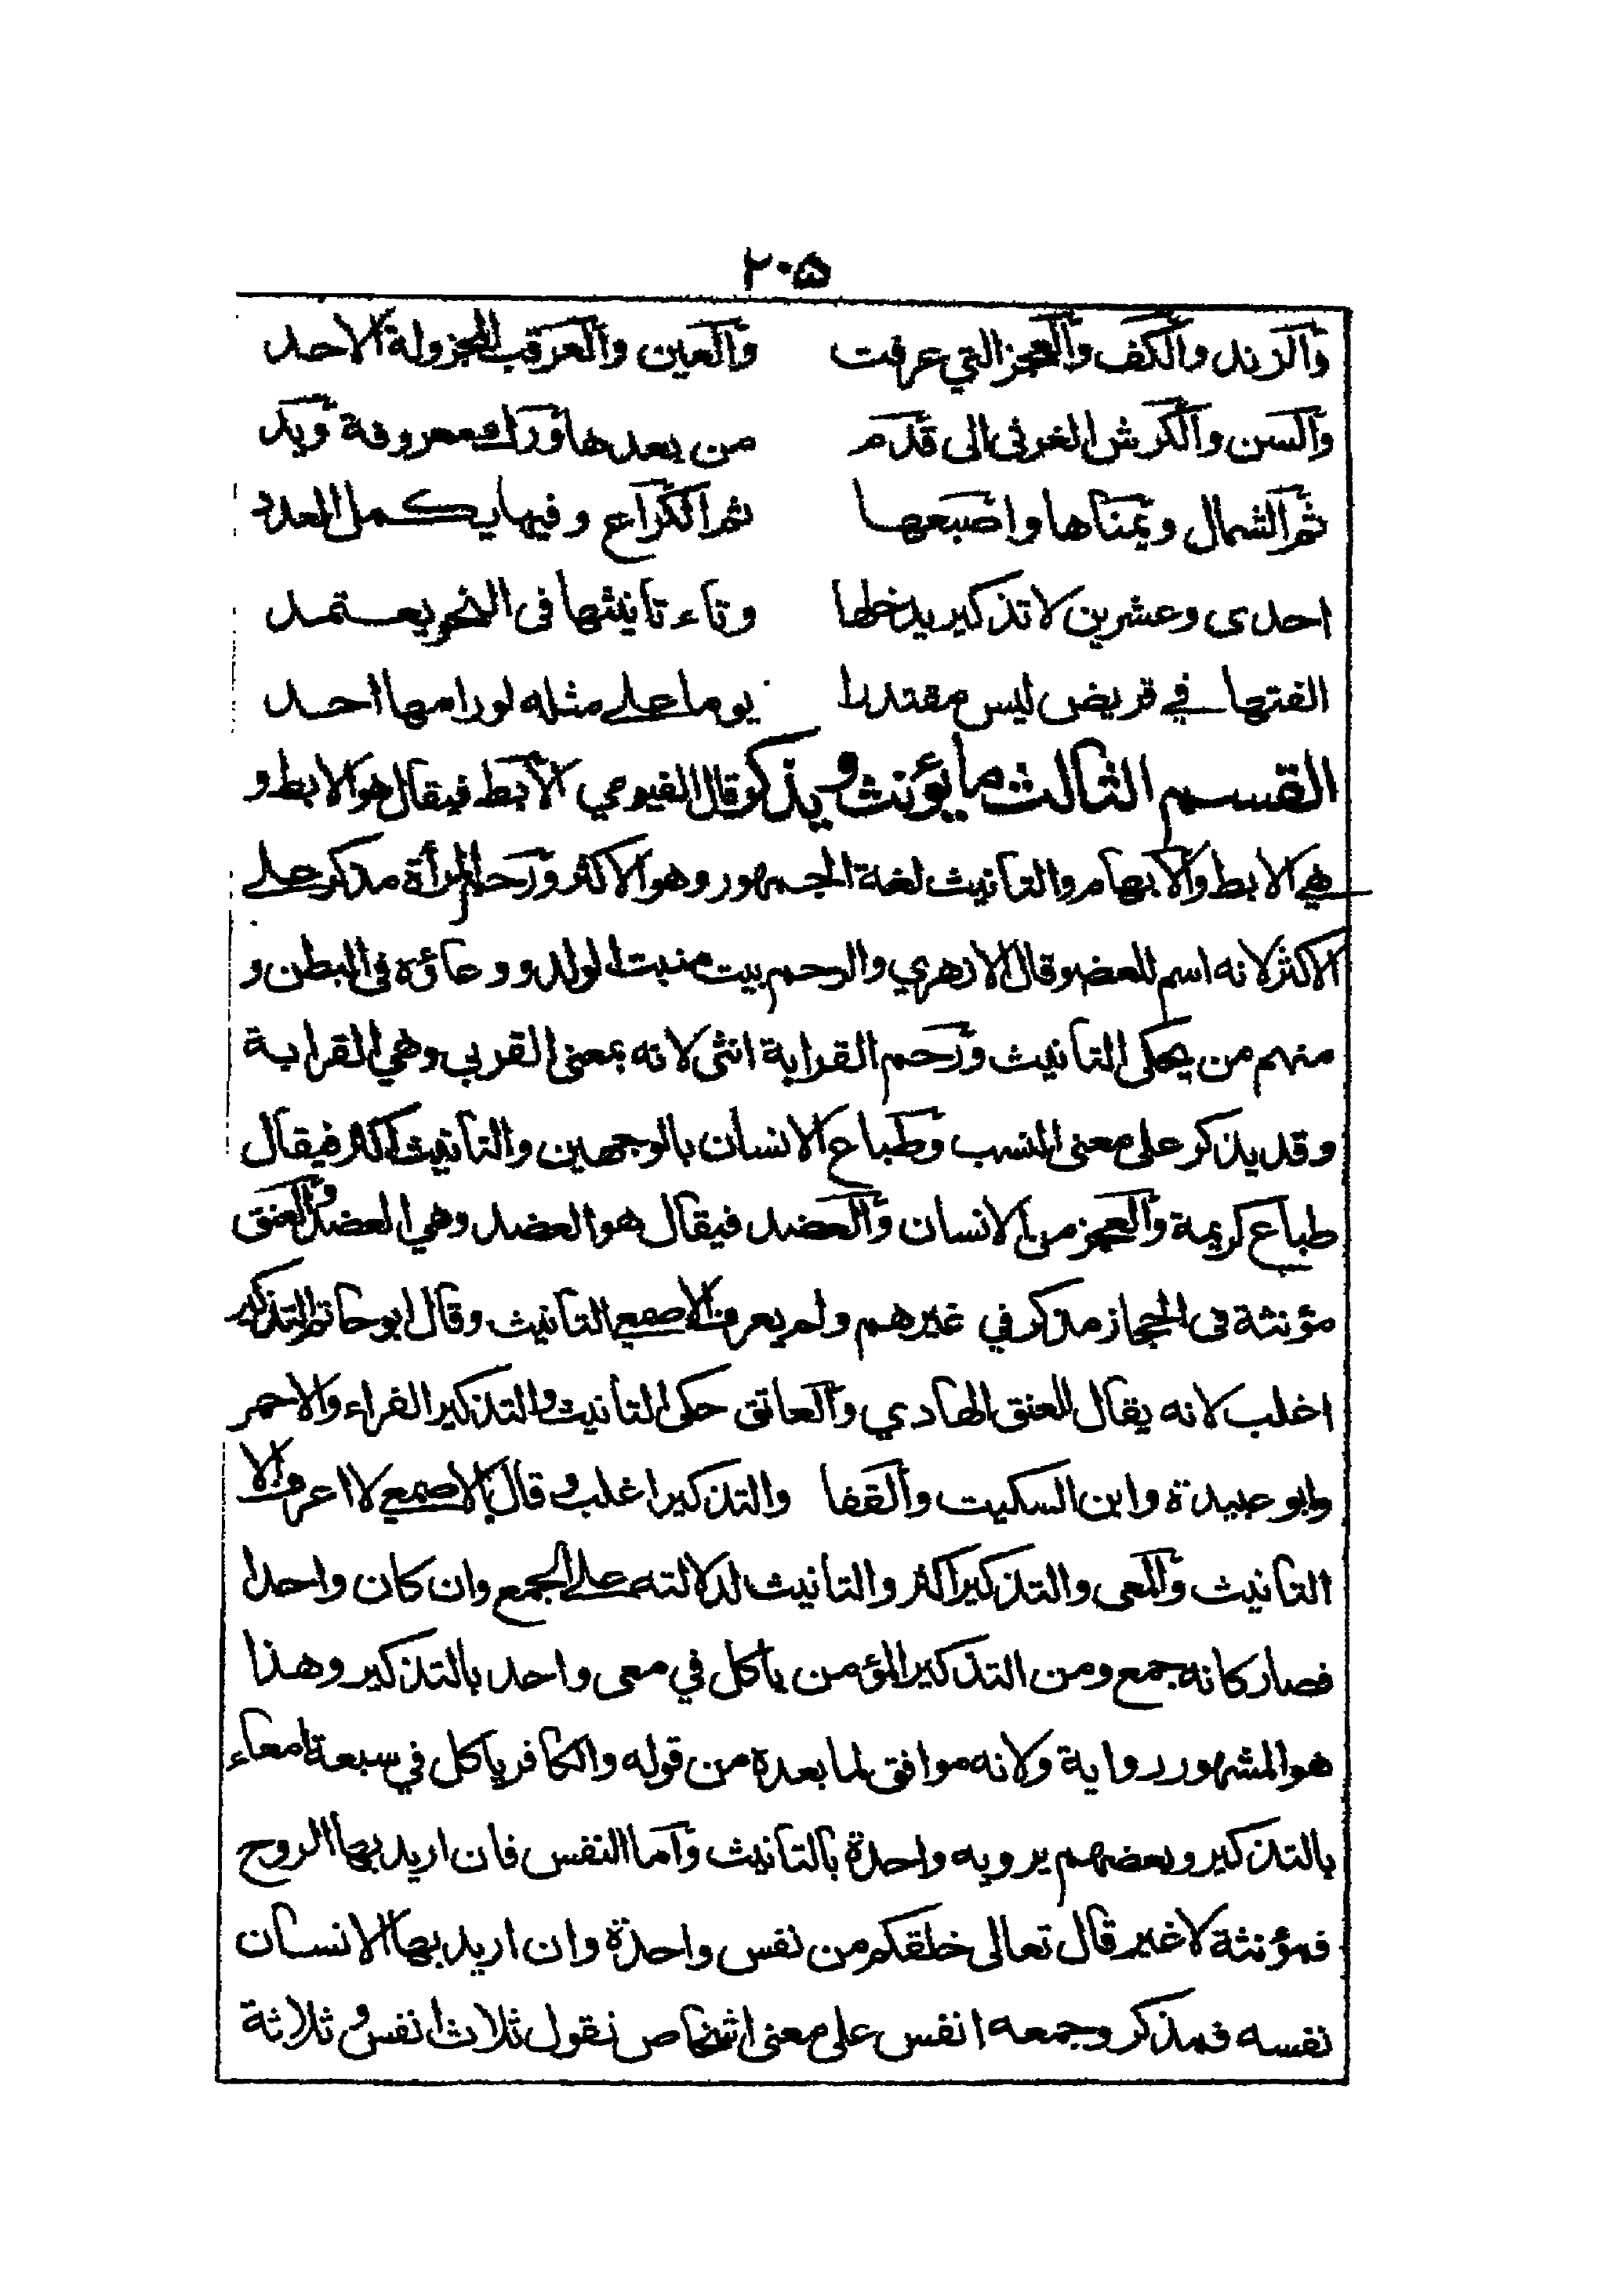 ٢٠٥
والزند والكف والعجز التي عرفت والعين والعرقب المجزولة الاحد
والسن والكرش الغرثى الى قدم من بعدها ورك معروفة ويد
ثم الشمال ويمناها واصبعها ثم الكراع وفيها يكمل العدد
احدى وعشرين لا تذكير يدخلها وتاء تانيثها فى النحو يعتمد
الفتها في قريض ليس مقتدرا يوما على مثله لو رامها احد
القسم الثالث ما يؤنث ويذكر قال الفيومي الابط فيقال هو الابط و
هي الابط والابهام والتانيث لغة الجمهور وهو الاكثر ورحم المرأة مذكر على
الاكثر لانه اسم للعضو قال الازهري والرحم بيت منبت الولد ووعاؤه فى البطن و
منهم من يحكى التانيث ورحم القرابة انثى لانه بمعنى القربي وهي القرابة
وقد يذكر على معنى النسب وطباع الانسان بالوجهين والتانيث اكثر فيقال
طباع كريمة والعجز من الانسان والعضد فيقال هو العضد وهي العضد والعنق
مؤنثة فى الحجاز مذكر في غيرهم ولم يعرف الاصمعي التانيث وقال ابو حاتم التذكير
اغلب لانه يقال للعنق الهادي والعاتق حكى التانيث والتذكير الفراء والاحمر
وابو عبيدة وابن السكيت والقفا والتذكير اغلب و قال الاصمعي لا اعرف الا
التانيث والمعى والتذكير اكثر والتانيث لدلالته على الجمع وان كان واحدا
فصار كانه جمع ومن التذكير المؤمن ياكل في معى واحد بالتذكير وهذا
هو المشهور رواية ولانه موافق لما بعده من قوله والكافر ياكل في سبعة امعاء
بالتذكير وبعضهم يرويه واحدة بالتانيث واما النفس فان اريد بها الروح
فمؤنثة لا غير قال تعالى خلقكم من نفس واحدة وان اريد بها الانسان
نفسه فمذكر وجمعه انفس على معنى اشخاص نقول ثلاث انفس و ثلاثة